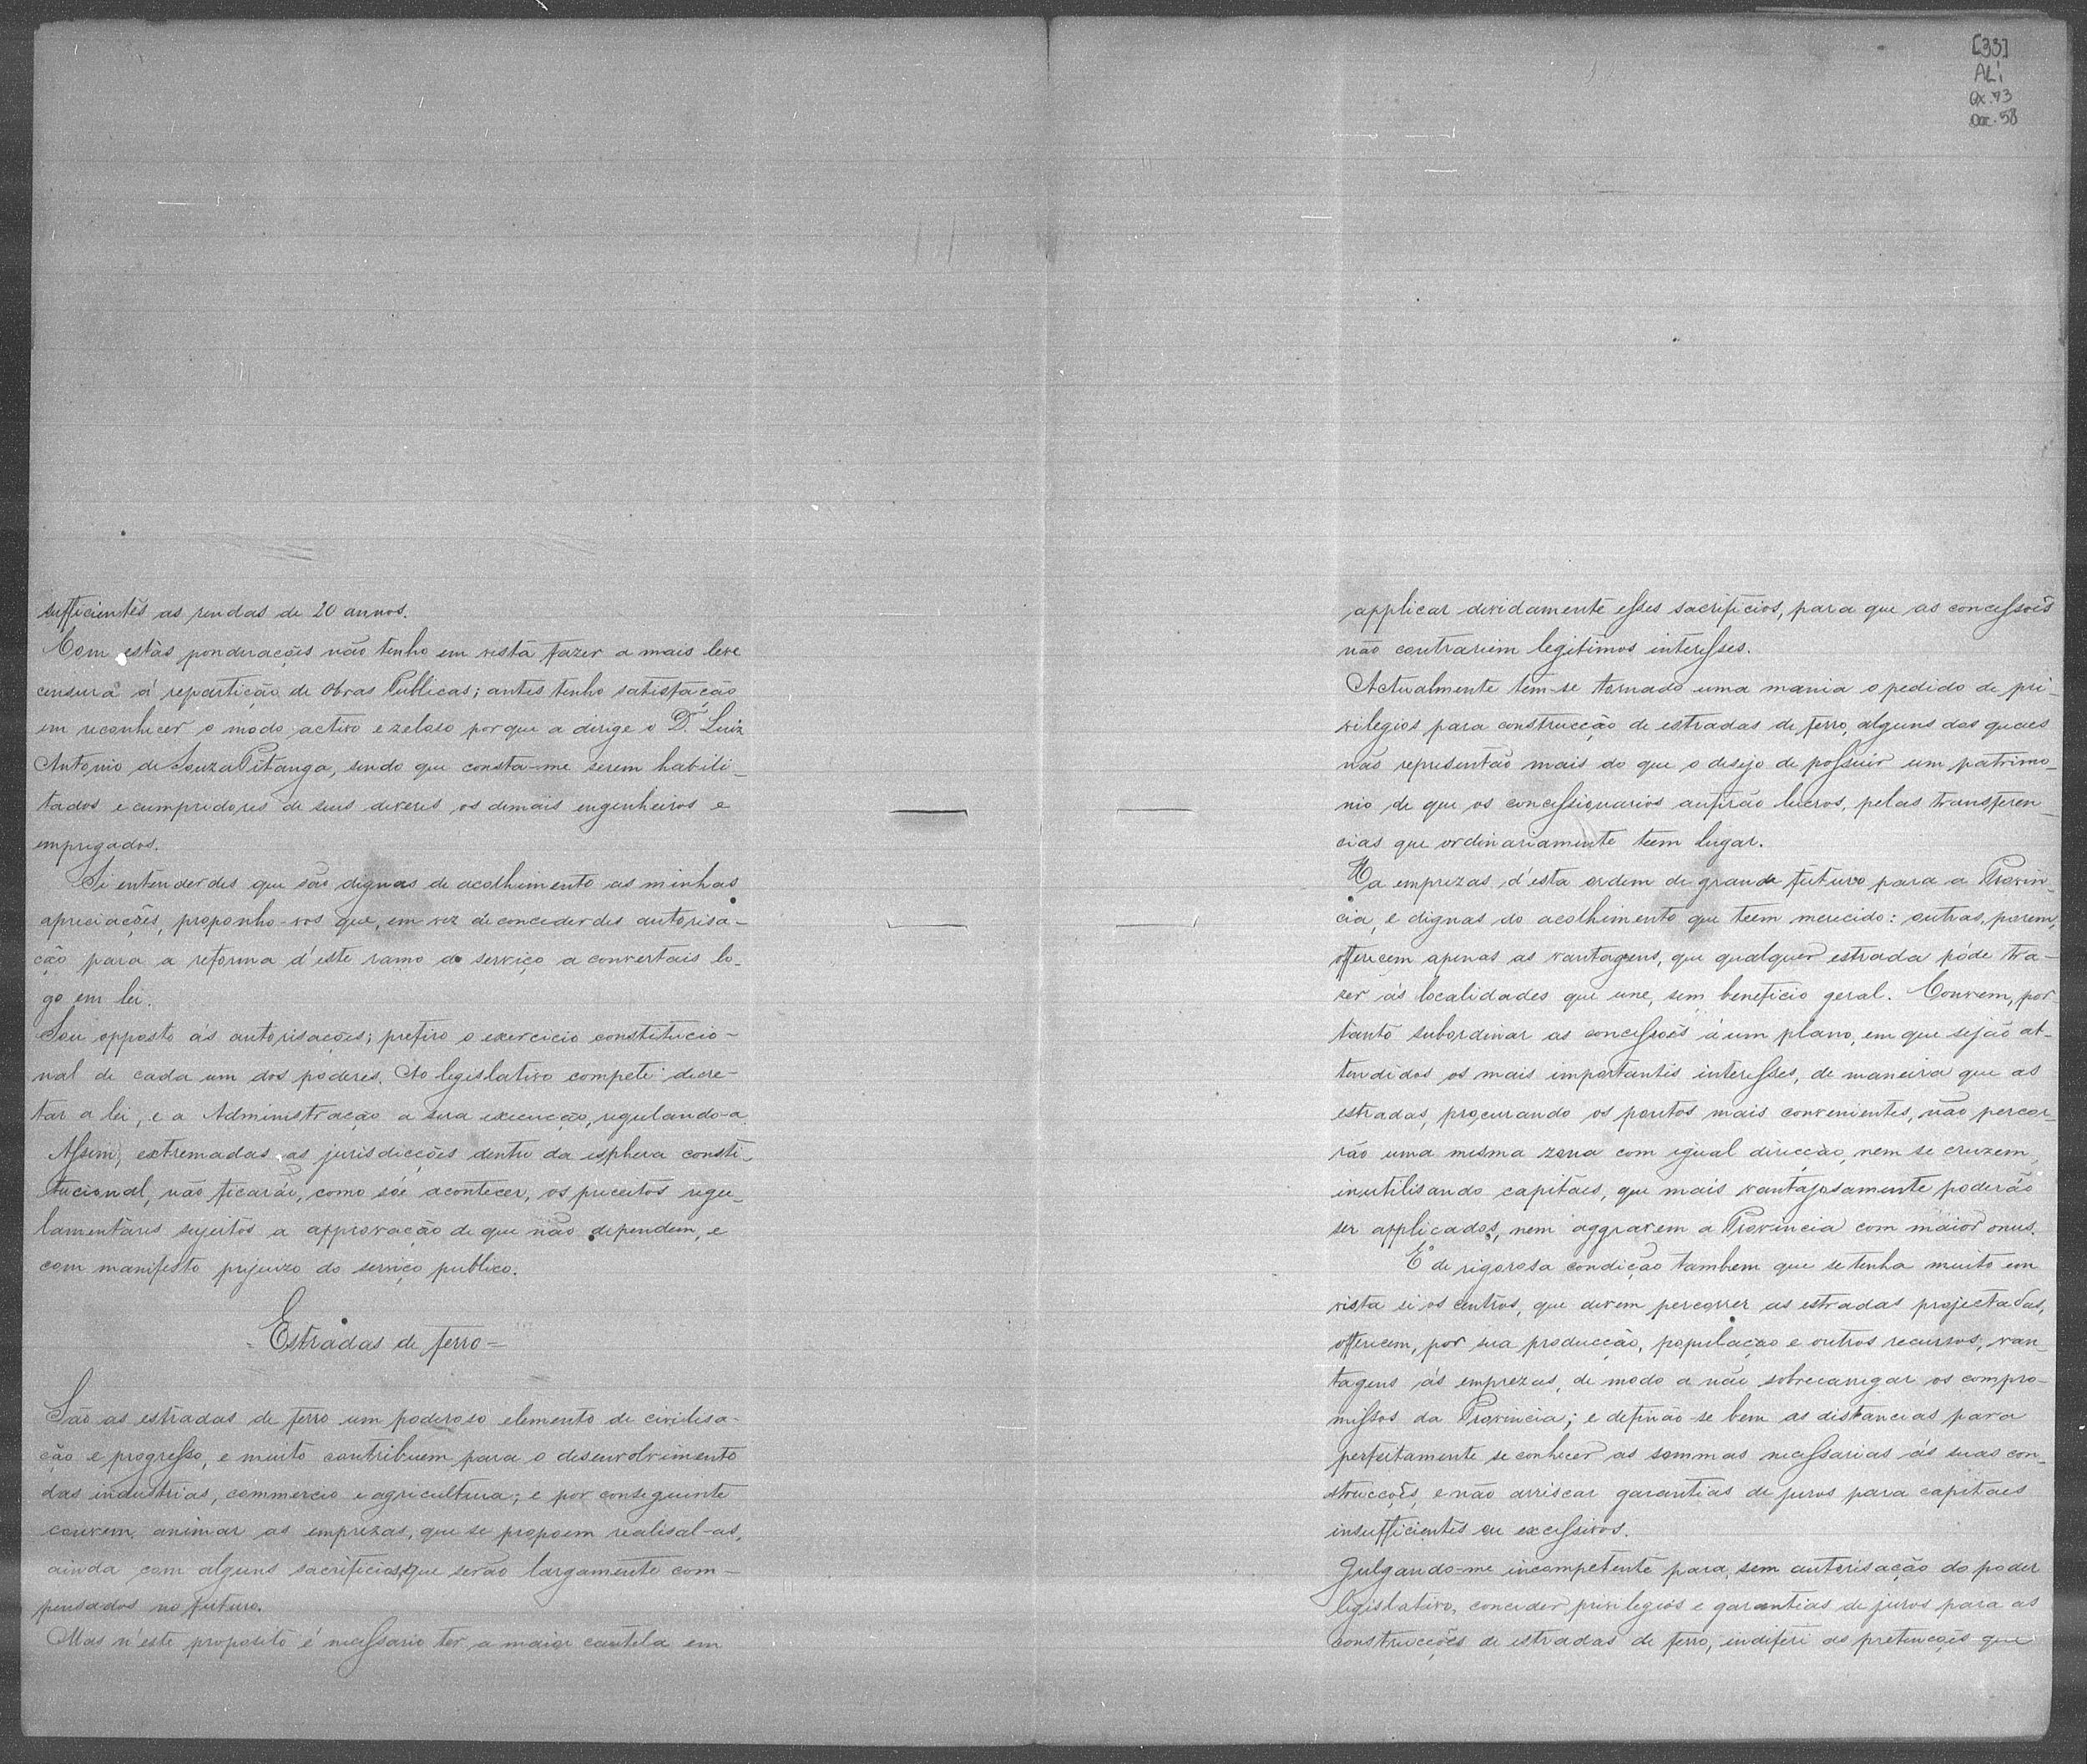 sufficientes as rendas de 20 annos.
Com estas ponderações não tenho em vista fazer a mais leve
censura á repartição de Obras Publicas; antes tenho satisfação
em reconhecer o modo activo e zeloso porque a dirige o Dr. Luiz
Antonio de Souza Pitanga, sendo que consta-me serem habili-
tados e cumpridores de seus deveres os demais engenheiros e
empregados.
Si entenderdes que são dignas de acolhimento as minhas
apreciações, proponho-vos que, em vez de concederdes autorisa-
ção para a reforma d'este ramo do serviço a convertais lo-
go em lei.
Sou opposto ás autorisações; prefiro o exercicio constitucio-
nal de cada um dos poderes. Ao legislativo compete decre-
tar a lei, e a Administração a sua execução, regulando-a.
Assim, extremadas as jurisdicções dentro da esphera consti-
tucional, não ficarão, como sóe acontecer, os preceitos regu-
lamentares sujeitos a approvação de que não dependem, e
com manifesto prejuizo do serviço publico.
= Estradas de ferro =
São as estradas de ferro um poderoso elemento de civilisa-
ção e progresso, e muito contribuem para o desenvolvimento
das industrias, commercio e agricultura; e por conseguinte
convem animar as emprezas, que se propoem realisal-as,
ainda com alguns sacrificios, que serão largamente com-
pensados no futuro.
Mas n'este proposito é necessario ter a maior cautela em
[33]
AL.1
Cx.73
Doc.58
applicar devidamente esses sacrificios, para que as concessoẽs
não contrariem legitimos interesses.
Actualmente tem-se tornado uma mania o pedido de pri-
vilegios para construcção de estradas de ferro, alguns dos quaes
não representão mais do que o desejo de possuir um patrimo-
nio de que os concessionarios aufirão lucros, pelas transferen-
cias que ordinariamente teem lugar.
Ha emprezas d'esta ordem de grande futuro para a Provin-
cia, e dignas do acolhimento que teem merecido: outras, porem,
offerecem apenas as vantagens, que qualquer estrada póde tra-
zer ás localidades que une, sem beneficio geral. Convem, por
tanto subordinar as concessoẽs á um plano, em que sejão at-
tendidos os mais importantes interesses, de maneira que as
estradas, procurando os pontos mais convenientes, não percor-
rão uma mesma zona com igual direcção, nem se cruzem,
inutilisando capitaes, que mais vantajosamente poderão
ser applicados, nem aggravem a Provincia com maior onus.
E' de rigorosa condição tambem que se tenha muito em
vista si os centros, que devem percorrer as estradas projectadas,
offerecem, por sua producção, população e outros recursos, van-
tagens ás emprezas, de modo a não sobrecarregar os compro-
missos da Provincia; e definão-se bem as distancias para
perfeitamente se conhecer as sommas necessarias ás suas con-
strucções, e não arriscar garantias de juros para capitaes
insufficientes ou excessivos.
Julgando-me incompetente para, sem autorisação do poder
legislativo, conceder privilegios e garantias de juros para as
construcções de estradas de ferro, indeferi as pretenções que